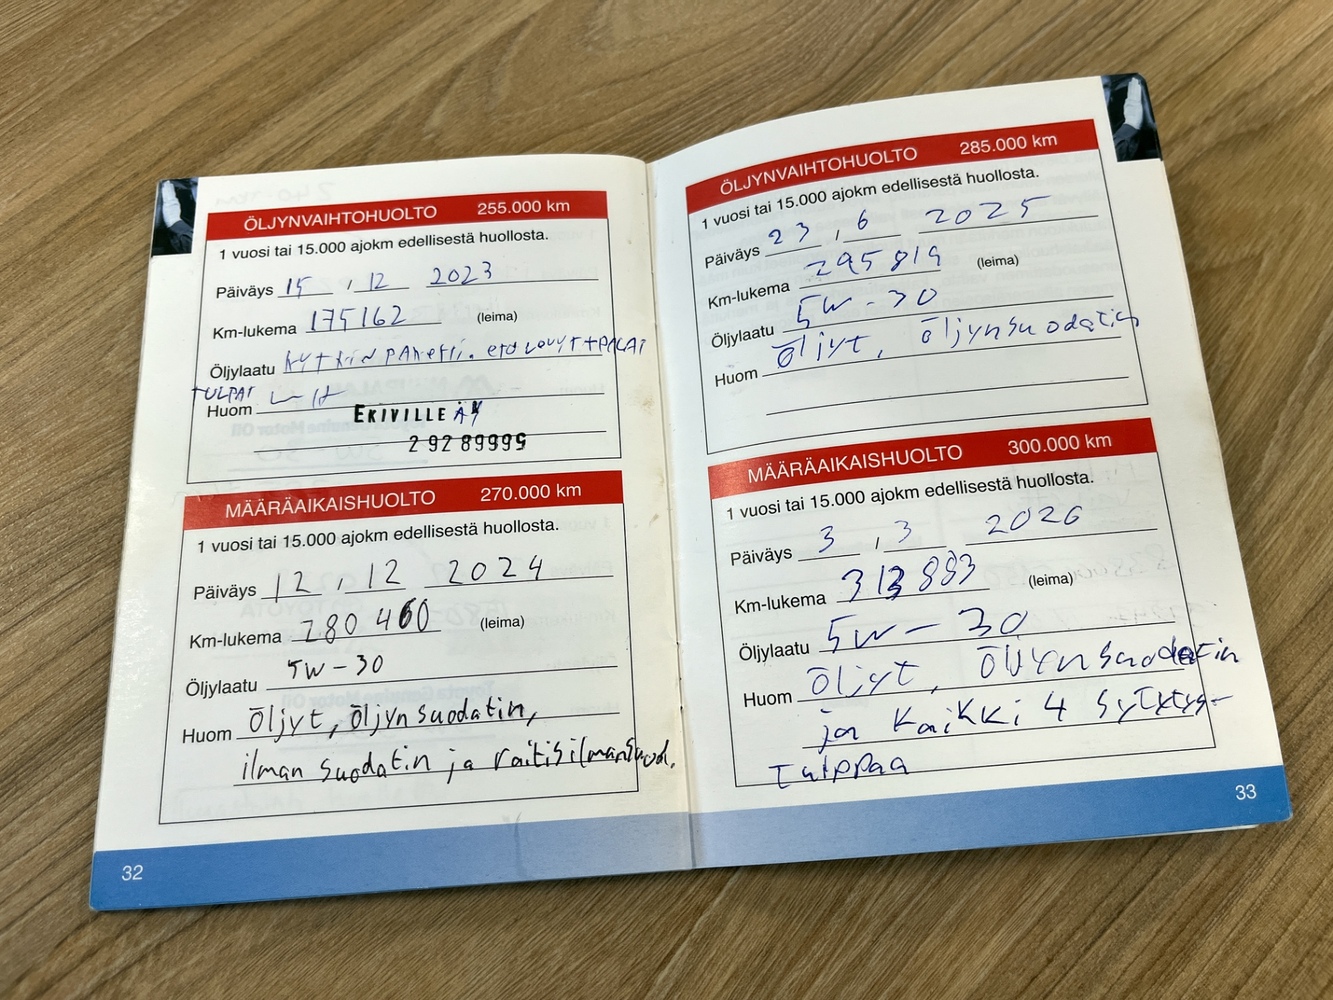 ÖLJYNVAIHTOHUOLTO 255.000 km
1 vuosi tai 15.000 ajokm edellisestä huollosta.
Päiväys 15 , 12 2023
Km-lukema 175162 (leima)
Öljylaatu KYTKIN PAKETTI. ETU LEVYT + PALAT
TULPAT
Huom
EKIVILLE ÄY
292 89995
MÄÄRÄAIKAISHUOLTO 270.000 km
1 vuosi tai 15.000 ajokm edellisestä huollosta.
Päiväys 12 , 12 2024
Km-lukema 280 460 (leima)
Öljylaatu 5W-30
Huom Öljyt, öljyn suodatin,
ilman suodatin ja raitisilmansuod.
32
ÖLJYNVAIHTOHUOLTO 285.000 km
1 vuosi tai 15.000 ajokm edellisestä huollosta.
Päiväys 23 , 6 2025
Km-lukema 295 819 (leima)
Öljylaatu 5W-30
Huom öljyt, öljynsuodatin
MÄÄRÄAIKAISHUOLTO 300.000 km
1 vuosi tai 15.000 ajokm edellisestä huollosta.
Päiväys 3 , 3 2026
Km-lukema 313 883 (leima)
Öljylaatu 5W-30
Huom öljyt, öljynsuodatin
ja kaikki 4 sytytys-
tulppaa
33